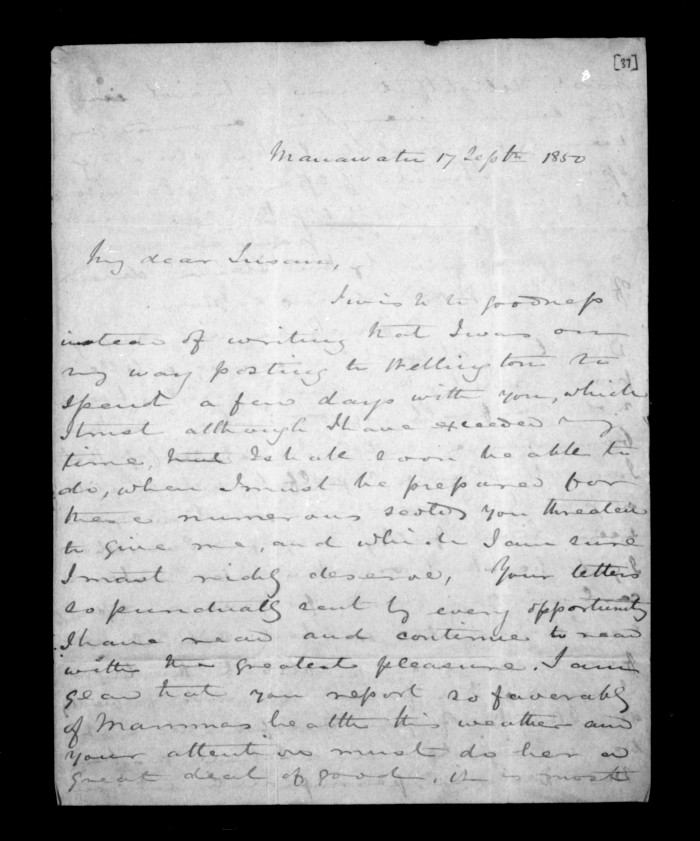 [37]
Manawatu 17 Septr 1850
My dear Susan,
I wish to goodness
instead of writing that I was on
my way posting to Wellington to
spend a few days with you, which
I trust although I have exceeded my
time, I shall soon be able to
do, when I must be prepared for
these numerous scolds you threaten
to give me, and which I am sure
I most richly deserve, Your letters
so punctually sent by every opportunity
I have read and continue to read
with the greatest pleasure. I am
glad that you report so favorably
of Mammas health this weather and
your attention must do her a
great deal of good, it is most